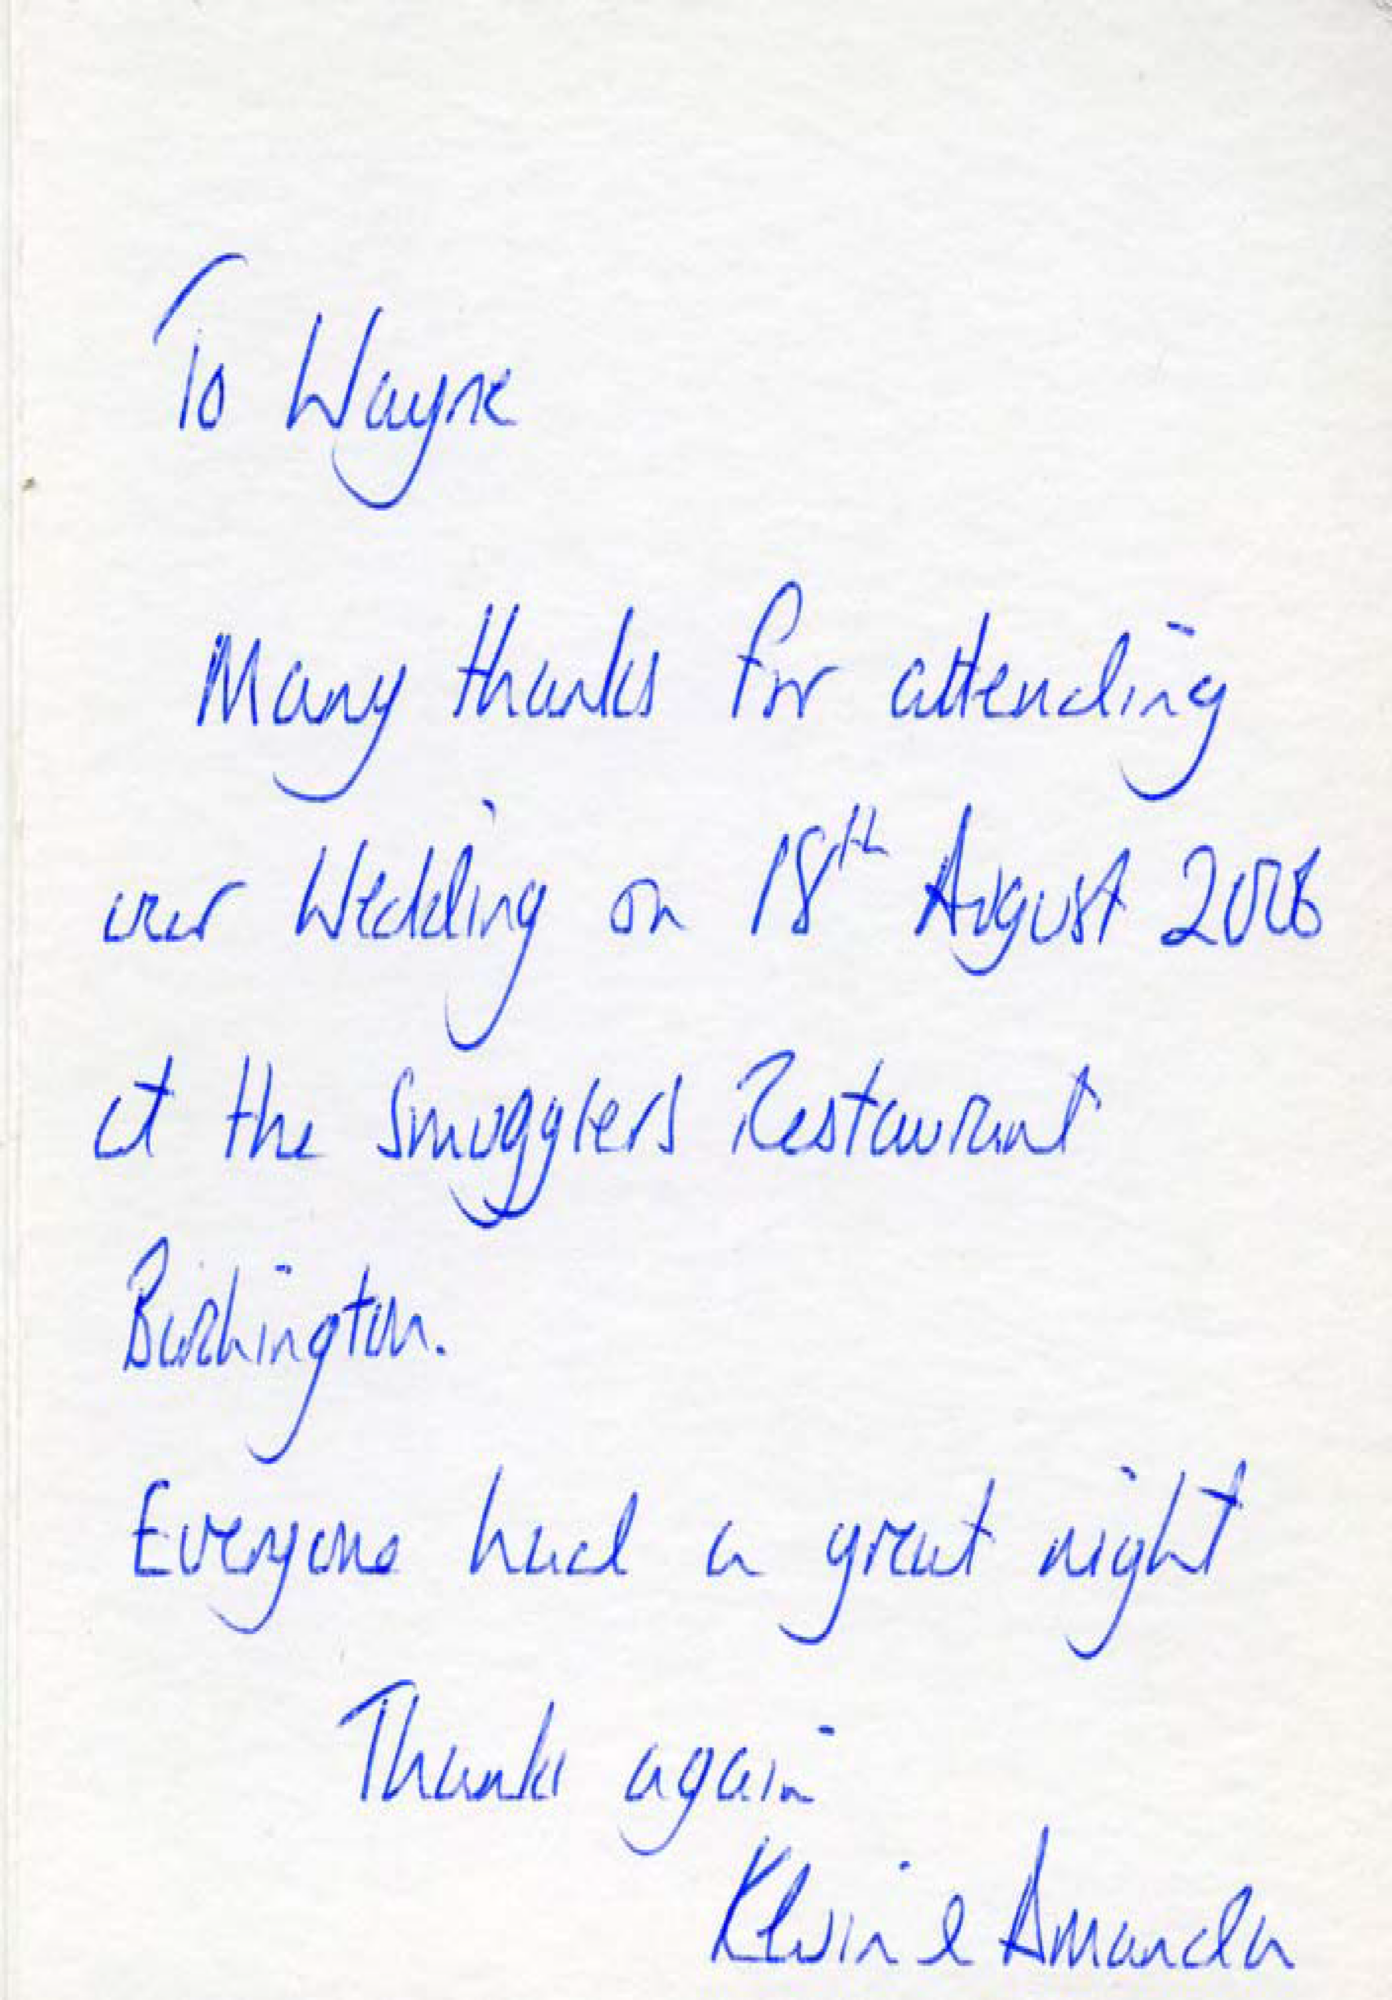 To Wayne
Many thanks for attending
our Wedding on 18th August 2006
at the Smugglers Restaurant
Everyone had a great night
Thanks again
& Amanda